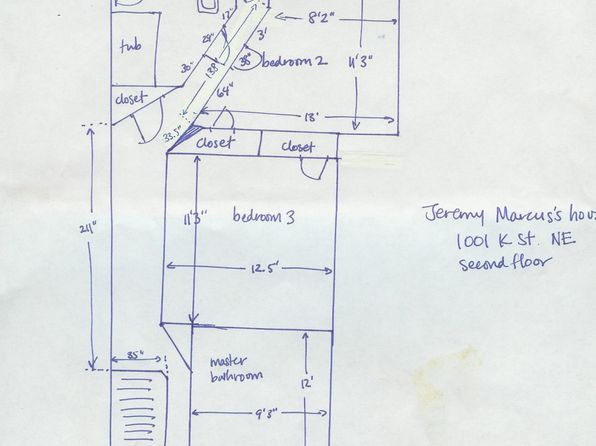 17"
8'2"
tub
29"
3'
38"
bedroom 2
11'3"
30"
64"
closet
18'
33.5"
closet
closet
11'3"
bedroom 3
Jeremy Marcus's hou
1001 K St. NE
second floor
12.5'
35"
master
bathroom
12'
9'3"